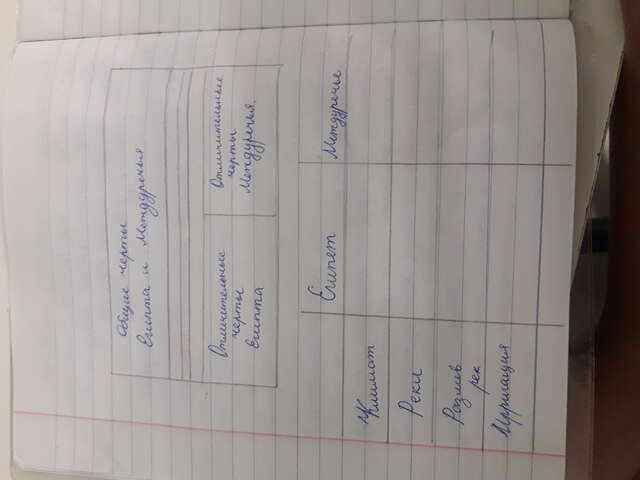 Общие черты
Египта и Междуречья
Отличительные
черты
Египта
Отличительные
черты
Междуречья.
Египет
Междуречье
Климат
Реки
Разлив
рек
Ирригация